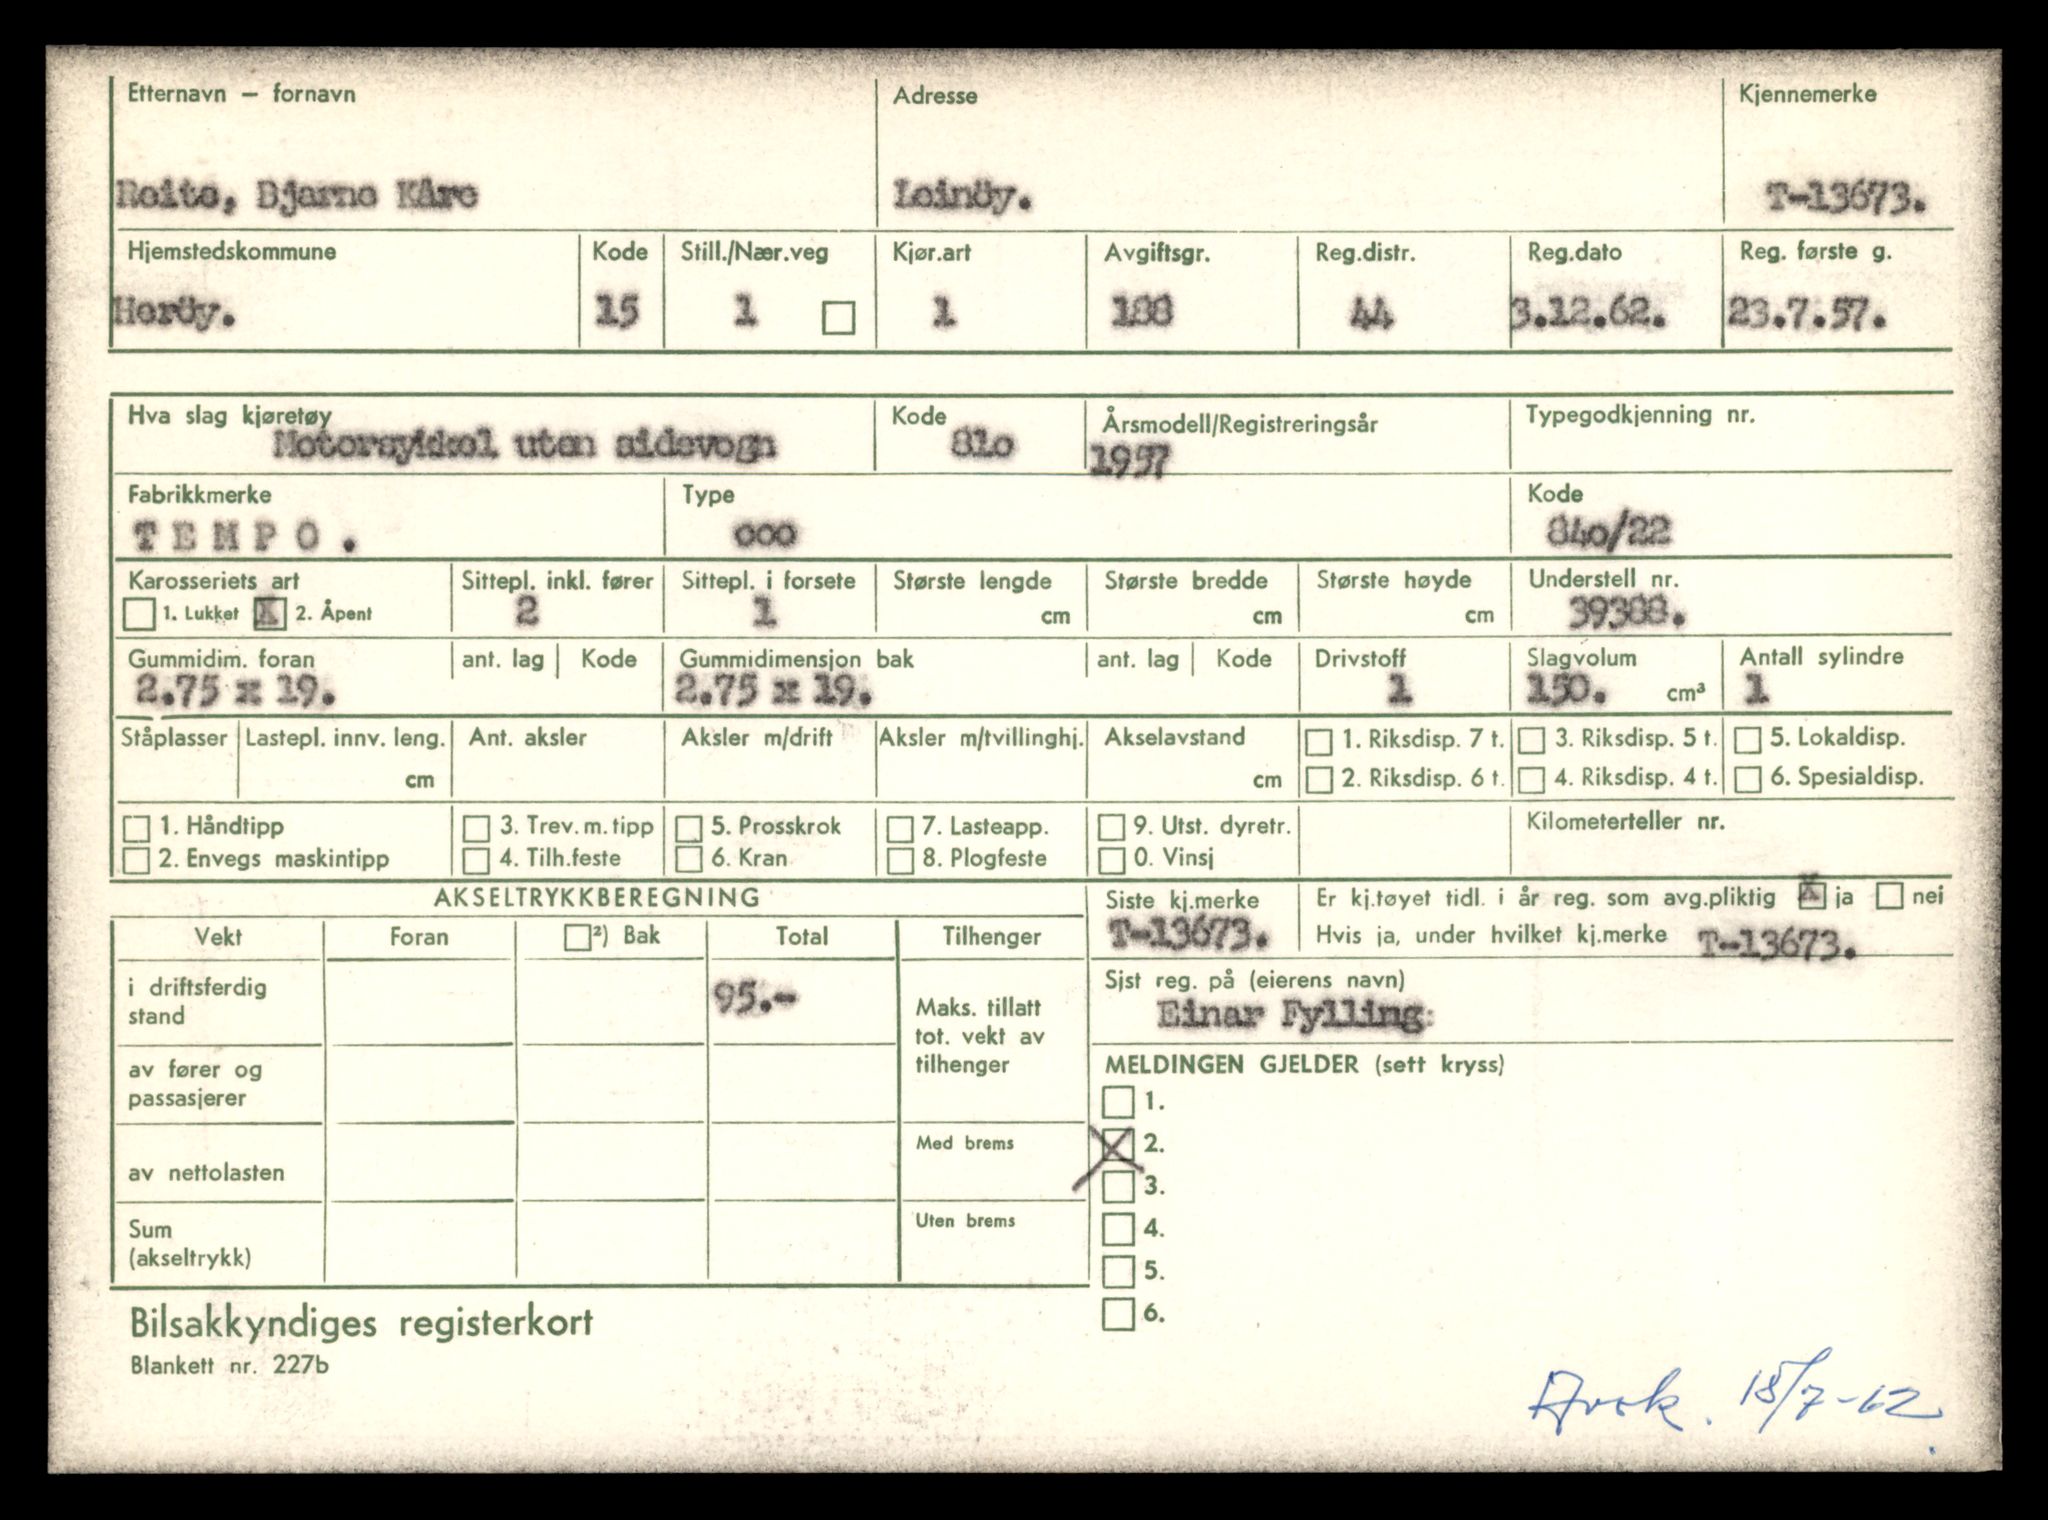 Etternavn – fornavn Adresse Kjennemerke
Reite, Bjarne Kåre Leinöy. T-13673.
Hjemstedskommune Kode Still./Nær.veg Kjør.art Avgiftsgr. Reg.distr. Reg.dato Reg. første g.
Heröy. 15 1 1 188 44 3.12.62. 23.7.57.
Hva slag kjøretøy Kode Årsmodell/Registreringsår Typegodkjenning nr.
Motorsykkel uten sidevogn 81o 1957
Fabrikkmerke Type Kode
TEMPO. ooo 84o/22
Karosseriets art Sittepl. inkl. fører Sittepl. i forsete Største lengde Største bredde Største høyde Understell nr.
1. Lukket X 2. Åpent 2 1 cm cm cm 39388.
Gummidim. foran ant. lag Kode Gummidimensjon bak ant. lag Kode Drivstoff Slagvolum Antall sylindre
2.75 x 19. 2.75 x 19. 1 150. cm³ 1
Ståplasser Lastepl. innv. leng. Ant. aksler Aksler m/drift Aksler m/tvillinghj. Akselavstand 1. Riksdisp. 7 t. 3. Riksdisp. 5 t. 5. Lokaldisp.
cm cm 2. Riksdisp. 6 t. 4. Riksdisp. 4 t. 6. Spesialdisp.
1. Håndtipp 3. Trev. m. tipp 5. Prosskrok 7. Lasteapp. 9. Utst. dyretr. Kilometerteller nr.
2. Envegs maskintipp 4. Tilh.feste 6. Kran 8. Plogfeste 0. Vinsj
AKSELTRYKKBEREGNING Siste kj.merke Er kj.tøyet tidl. i år reg. som avg.pliktig X ja nei
Vekt Foran ²) Bak Total Tilhenger T-13673. Hvis ja, under hvilket kj.merke T-13673.
i driftsferdig stand 95.- Maks. tillatt tot. vekt av tilhenger
Sist reg. på (eierens navn)
Einar Fylling.
av fører og passasjerer
MELDINGEN GJELDER (sett kryss)
1.
Med brems X 2.
av nettolasten 3.
Sum (akseltrykk) Uten brems 4.
5.
6.
Bilsakkyndiges registerkort
Blankett nr. 227b
Avsk. 18/7-62